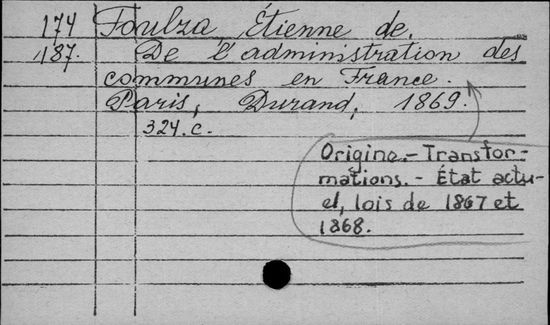 174 Foulza, Étienne de.
187. De l'administration des
communes en France.
Paris, Durand, 1869.
324.c.
Origine.-Transfor-
mations.- État actu-
el, lois de 1867 et
1868.